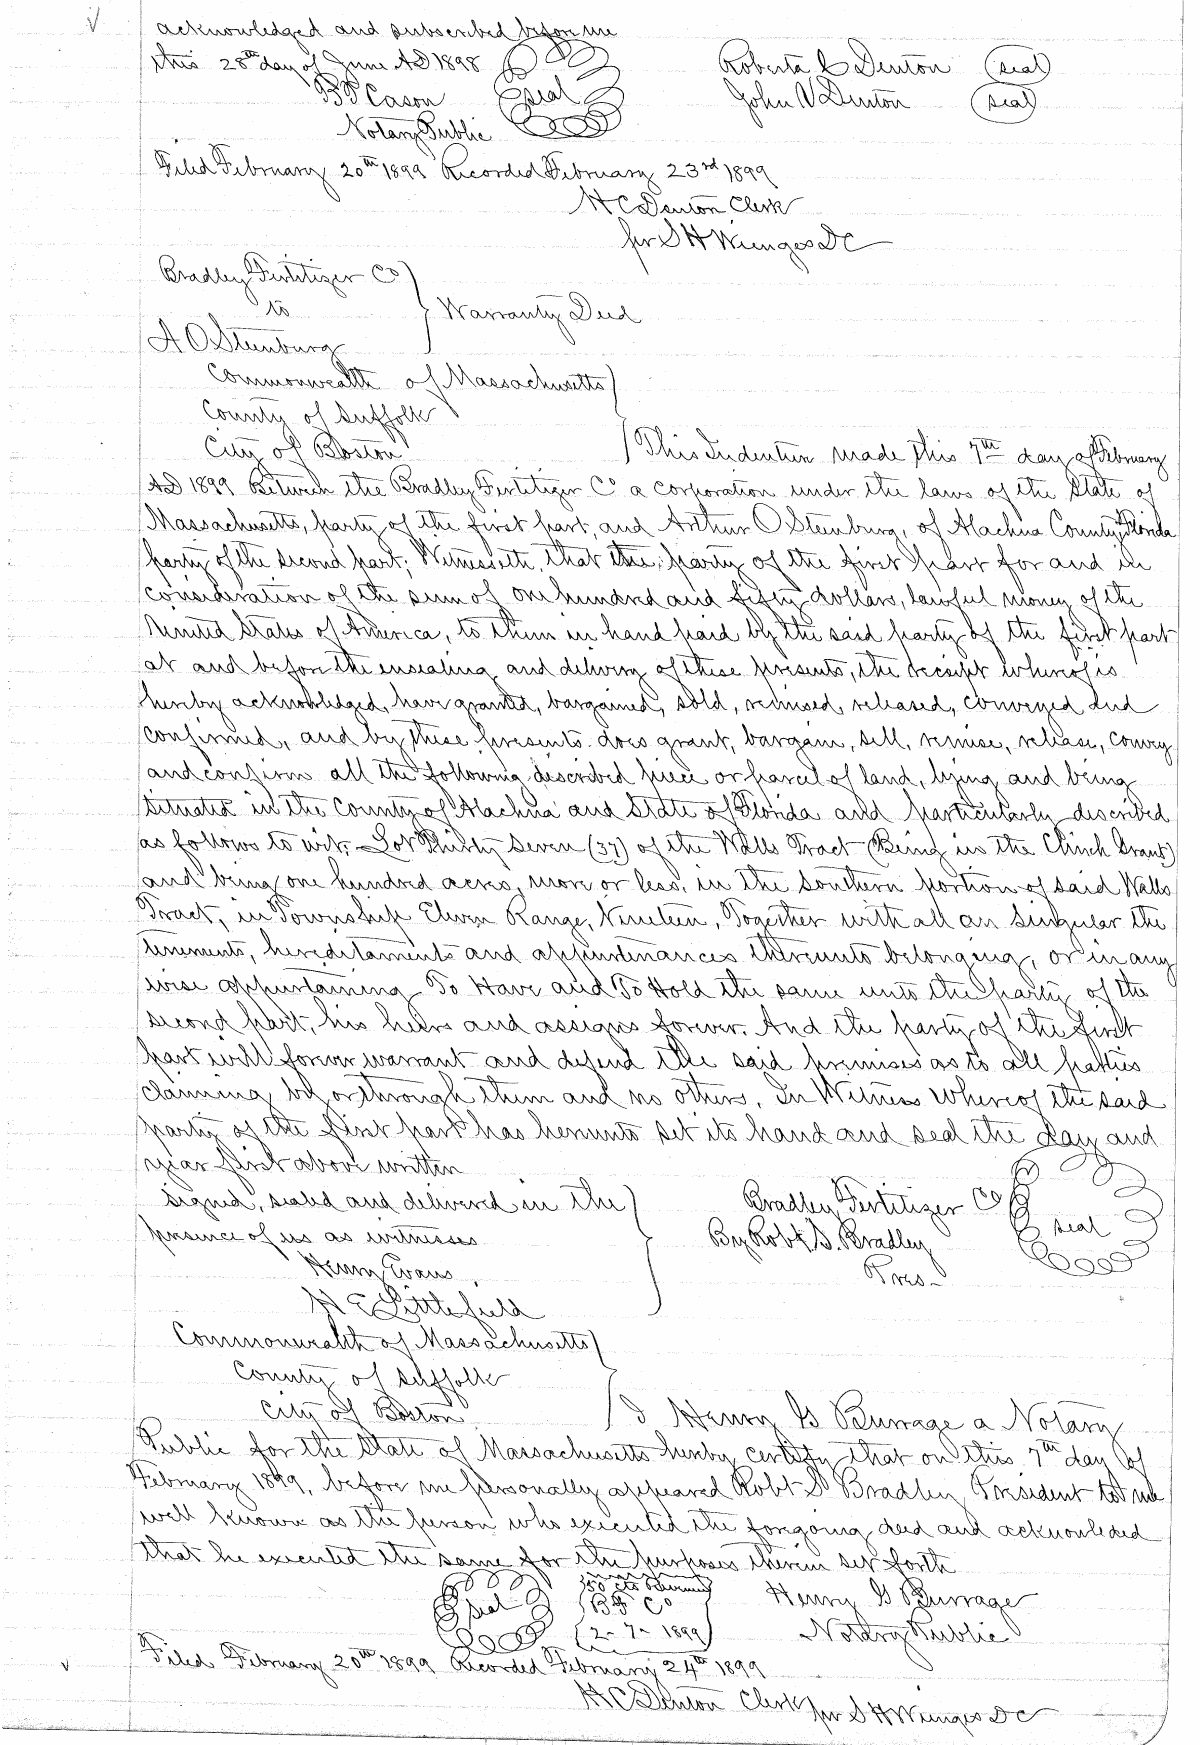 acknowledged and subscribed before me
this 28th day of June AD 1898
Roberta C Denton (seal)
B P Cason seal
John V Denton (seal)
Notary Public
Filed February 20th 1899 Recorded February 23rd 1899
H C Denton Clerk
per S H Wienges DC
Bradley Fertilizer Co
to
Warranty Deed
A O Steenburg
Commonwealth of Massachusetts
County of Suffolk
City of Boston This Indenture made this 7th day of February
AD 1899 Between the Bradley Fertilizer Co a corporation under the laws of the State of
Massachusetts, party of the first part, and Arthur O Steenburg, of Alachua County Florida
party of the second part; Witnesseth, that the party of the first part for and in
consideration of the sum of one hundred and fifty dollars, lawful money of the
United States of America, to them in hand paid by the said party of the first part
at and before the ensealing and delivery of these presents, the receipt whereof is
hereby acknowledged, have granted, bargained, sold, remised, released, conveyed and
confirmed, and by these presents does grant, bargain, sell, remise, release, convey
and confirm all the following described piece or parcel of land, lying and being
situated in the County of Alachua and State of Florida and particularly described
as follows to wit. Lot Thirty Seven (37) of the Walls Tract (Being in the Clinch Grant)
and being one hundred acres, more or less, in the southern portion of said Walls
Tract, in Township Eleven Range, Nineteen, Together with all an singular the
tenements, hereditaments and appurtenances thereunto belonging, or in any
wise appurtaining To Have and To Hold the same unto the party of the
second part, his heirs and assigns forever. And the party of the first
part will forever warrant and defend the said premises as to all parties
claiming by or through them and no others. In Witness Whereof the said
party of the first part has hereunto set its hand and seal the day and
year first above written
signed, sealed and delivered in the Bradley Fertilizer Co seal
presence of us as witnesses By Robt S. Bradley
Henry Evans Pres
H E Littlefield
Commonwealth of Massachusetts
County of Suffolk
City of Boston I Henry G Burrage a Notary
Public for the State of Massachusetts hereby certify that on this 7th day of
February 1899, before me personally appeared Robt S Bradley President to me
well known as the person who executed the foregoing deed and acknowledged
that he executed the same for the purposes therein set forth
seal 50 cts Revenue Henry G Burrage
B F Co
2-7-1899 Notary Public
Filed February 20th 1899 Recorded February 24th 1899
H C Denton Clerk per S H Wienges DC